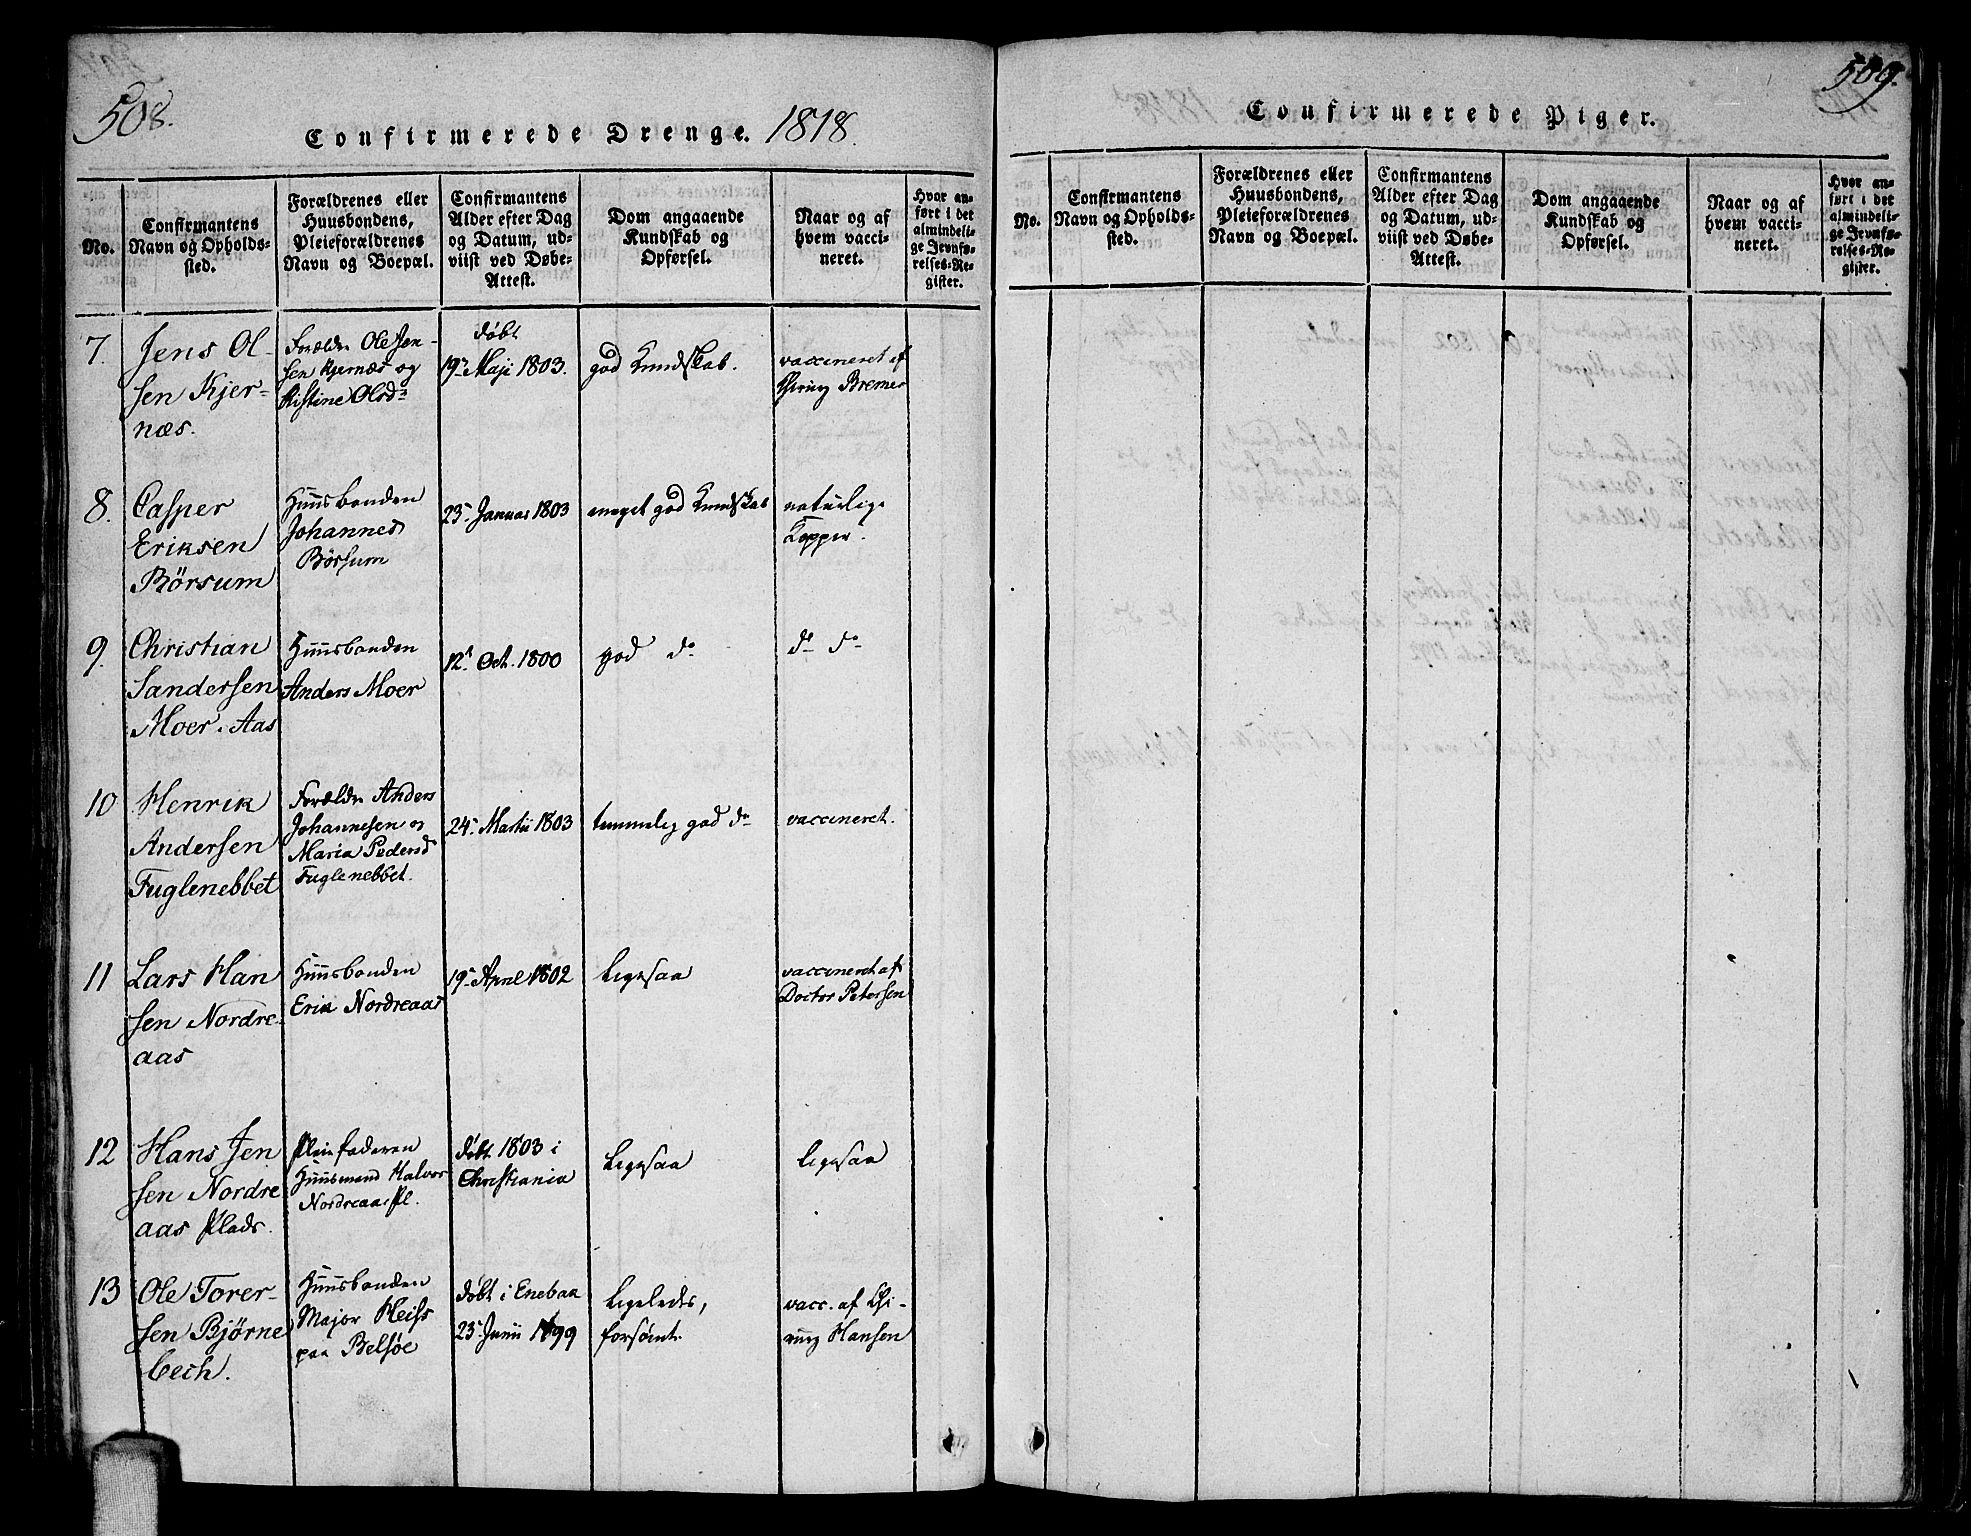 508.
Confirmerede Drenge. 1818.
No.
Confirmantens
Navn og Opholds-
sted.
Forældrenes eller
Huusbondens,
Pleieforældrenes
Navn og Boepæl.
Confirmantens
Alder efter Dag
og Datum, ud-
viist ved Døbe-
Attest.
Dom angaaende
Kundskab og
Opførsel.
Naar og af
hvem vacci-
neret.
Hvor an-
ført i det
almindeli-
ge Jevnfø-
relses-Re-
gister.
7.
Jens Ol-
sen Kjer-
næs.
Forældre Ole Jen-
sen Kjernæs og
Kistine Olsd
døbt
19 Maji 1803.
god Kundskab.
vaccineret af
Chirurg Bremer
8.
Casper
Eriksen
Börsum
Huusbonden
Johannes
Börsum
23 Januar 1803
meget god Kundskab
naturlige
Kopper.
9.
Christian
Sandersen
Moer. Aas
Huusbonden
Anders Moer
12 Oct. 1800
god do
do do
10
Henrik
Andersen
Fuglenebbet
Forældre Anders
Johannesen og
Maria Pedersd
Fuglenebbet.
24 Martii 1803
temmelig god do
vaccineret.
11
Lars Han
sen Nordre-
aas
Huusbonden
Erik Nordreaas
19 April 1802
ligesaa
vaccineret af
Doctor Petersen
12
Hans Jen
sen Nordre
aas Plads.
Pleiefaderen
Huusmand Halvor
Nordreaas Pl.
døbt 1803 i
Christiania
ligesaa
ligesaa
13
Ole Torer-
sen Bjørne
bech.
Huusbonden
Major
paa Belsöe
døbt i Enebak
23 Junii 1799
ligeledes,
forsømt.
vacc. af Chi-
rurg Hansen
509.
Confirmerede Piger.
No.
Confirmantens
Navn og Opholds-
sted.
Forældrenes eller
Huusbondens,
Pleieforældrenes
Navn og Boepæl.
Confirmantens
Alder efter Dag
og Datum, ud-
viist ved Døbe-
Attest.
Dom angaaende
Kundskab og
Opførsel.
Naar og af
hvem vacci-
neret.
Hvor an-
ført i det
almindeli-
ge Jevnfø-
relses-Re-
gister.